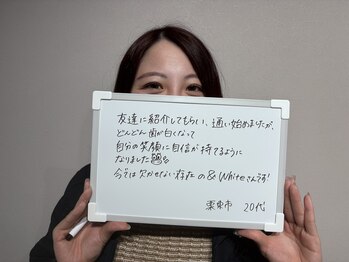 友達に紹介してもらい、通い始めましたが、
どんどん歯が白くなって
自分の笑顔に自信が持てるように
なりました
今では欠かせない存在の&Whiteさんです!
栗東市 20代